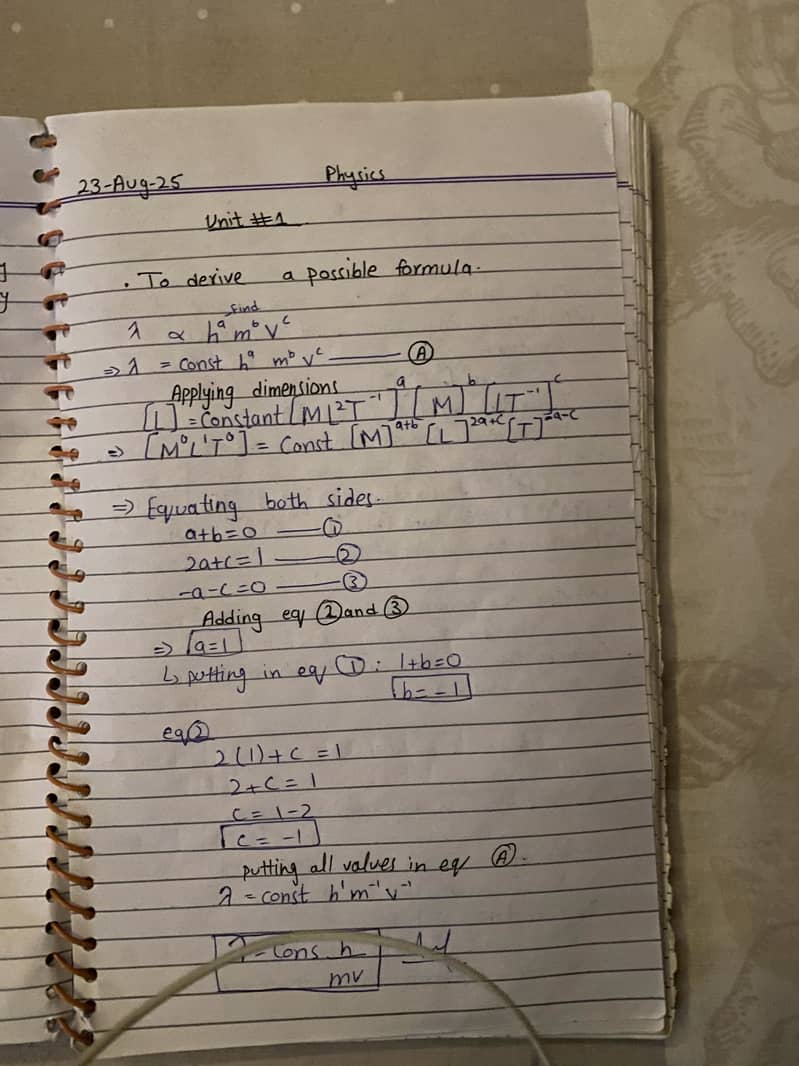 23-Aug-25 Physics
Unit #1
. To derive a possible formula.
find
λ ∝ hᵃ mᵇ vᶜ
⇒ λ = const hᵃ mᵇ vᶜ —— Ⓐ
Applying dimensions
[L] = Constant [ML²T⁻¹]ᵃ [M]ᵇ [LT⁻¹]ᶜ
⇒ [M⁰L¹T⁰] = Const [M]ᵃ⁺ᵇ [L]²ᵃ⁺ᶜ [T]⁻ᵃ⁻ᶜ
⇒ Equating both sides.
a+b=0 —— ①
2a+c=1 —— ②
-a-c=0 —— ③
Adding eq ② and ③
⇒ a=1
↳ putting in eq ①: 1+b=0
b=-1
eq ②
2(1)+c =1
2+c = 1
c= 1-2
c= -1
putting all values in eq Ⓐ.
λ = const h¹m⁻¹v⁻¹
λ = Cons h
mv
y